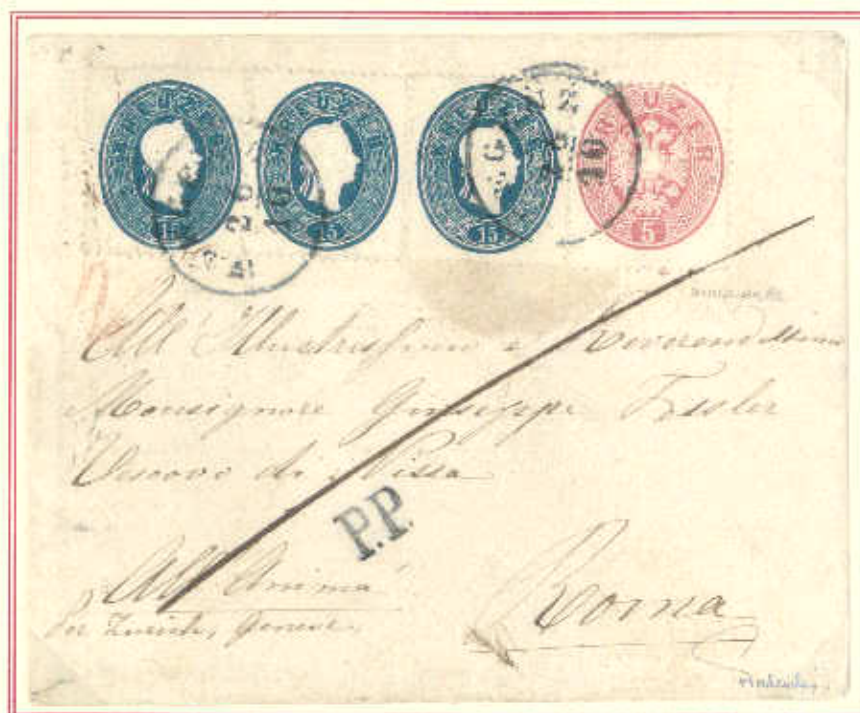 KREUZER KREUZER KREUZER KREUZER
15 15 15 5
All Illustrissimo e Reverendissimo
Monsignore Giuseppe Fessler
Vescovo di Nissa
P.P.
All' Anima
Roma
per Zurich, Geneve,